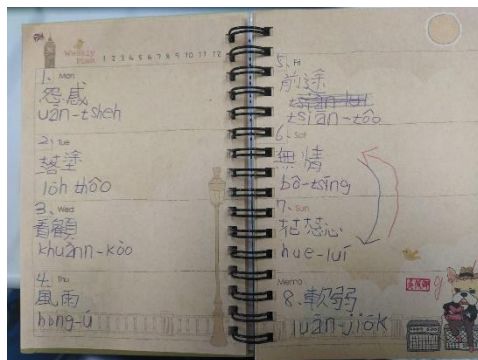 Weekly
Plan
1 2 3 4 5 6 7 8 9 10 11 12
1、Mon
怨感
uàn-tsheh
2、Tue
落塗
lo̍h thôo
3、Wed
看顧
khuànn-kòo
4、Thu
風雨
hong-ú
5、Fri
前途
tsiân-tôo
6、Sat
無情
bô-tsîng
7、Sun
花蕊
hue-luí
Memo
8、軟弱
luán-jio̍k